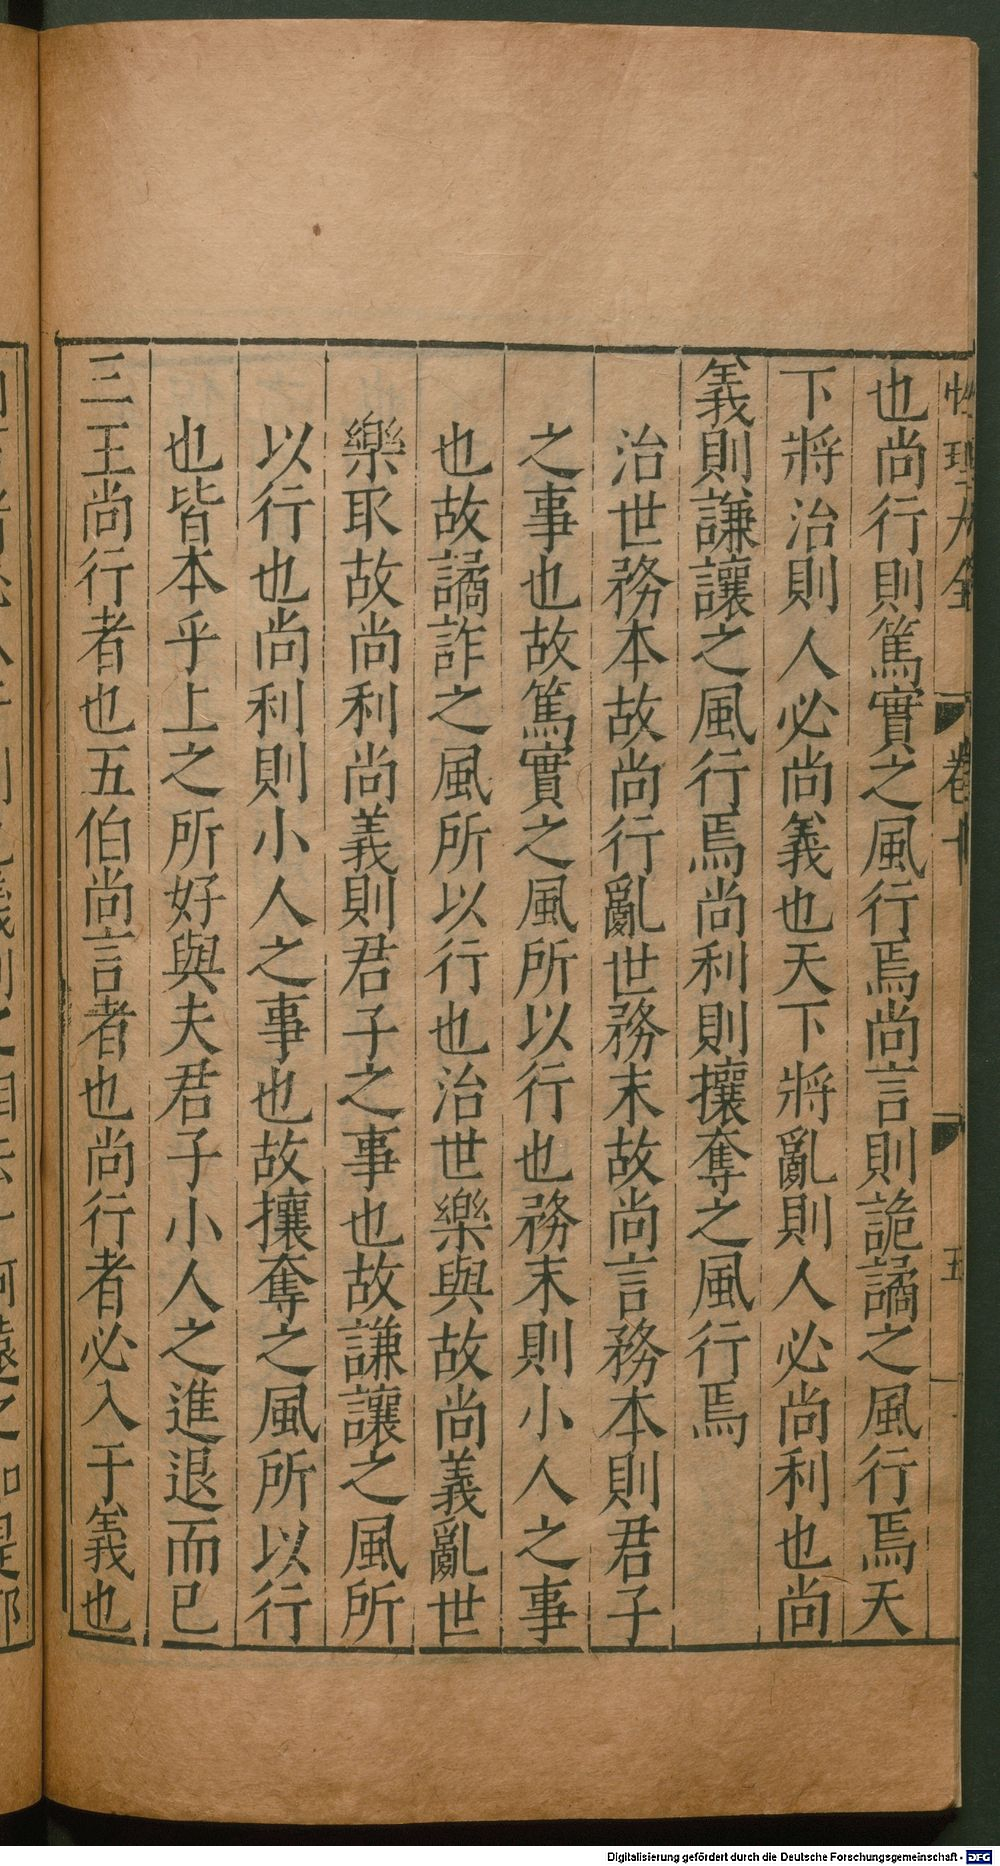 性理大全 卷十 五
也尚行則篤實之風行焉尚言則詭譎之風行焉天
下將治則人必尚義也天下將亂則人必尚利也尚
義則謙讓之風行焉尚利則攘奪之風行焉
治世務本故尚行亂世務末故尚言務本則君子
之事也故篤實之風所以行也務末則小人之事
也故譎詐之風所以行也治世樂與故尚義亂世
樂取故尚利尚義則君子之事也故謙讓之風所
以行也尚利則小人之事也故攘奪之風所以行
也皆本乎上之所好與夫君子小人之進退而已
三王尚行者也五伯尚言者也尚行者必入于義也
Digitalisierung gefördert durch die Deutsche Forschungsgemeinschaft - DFG